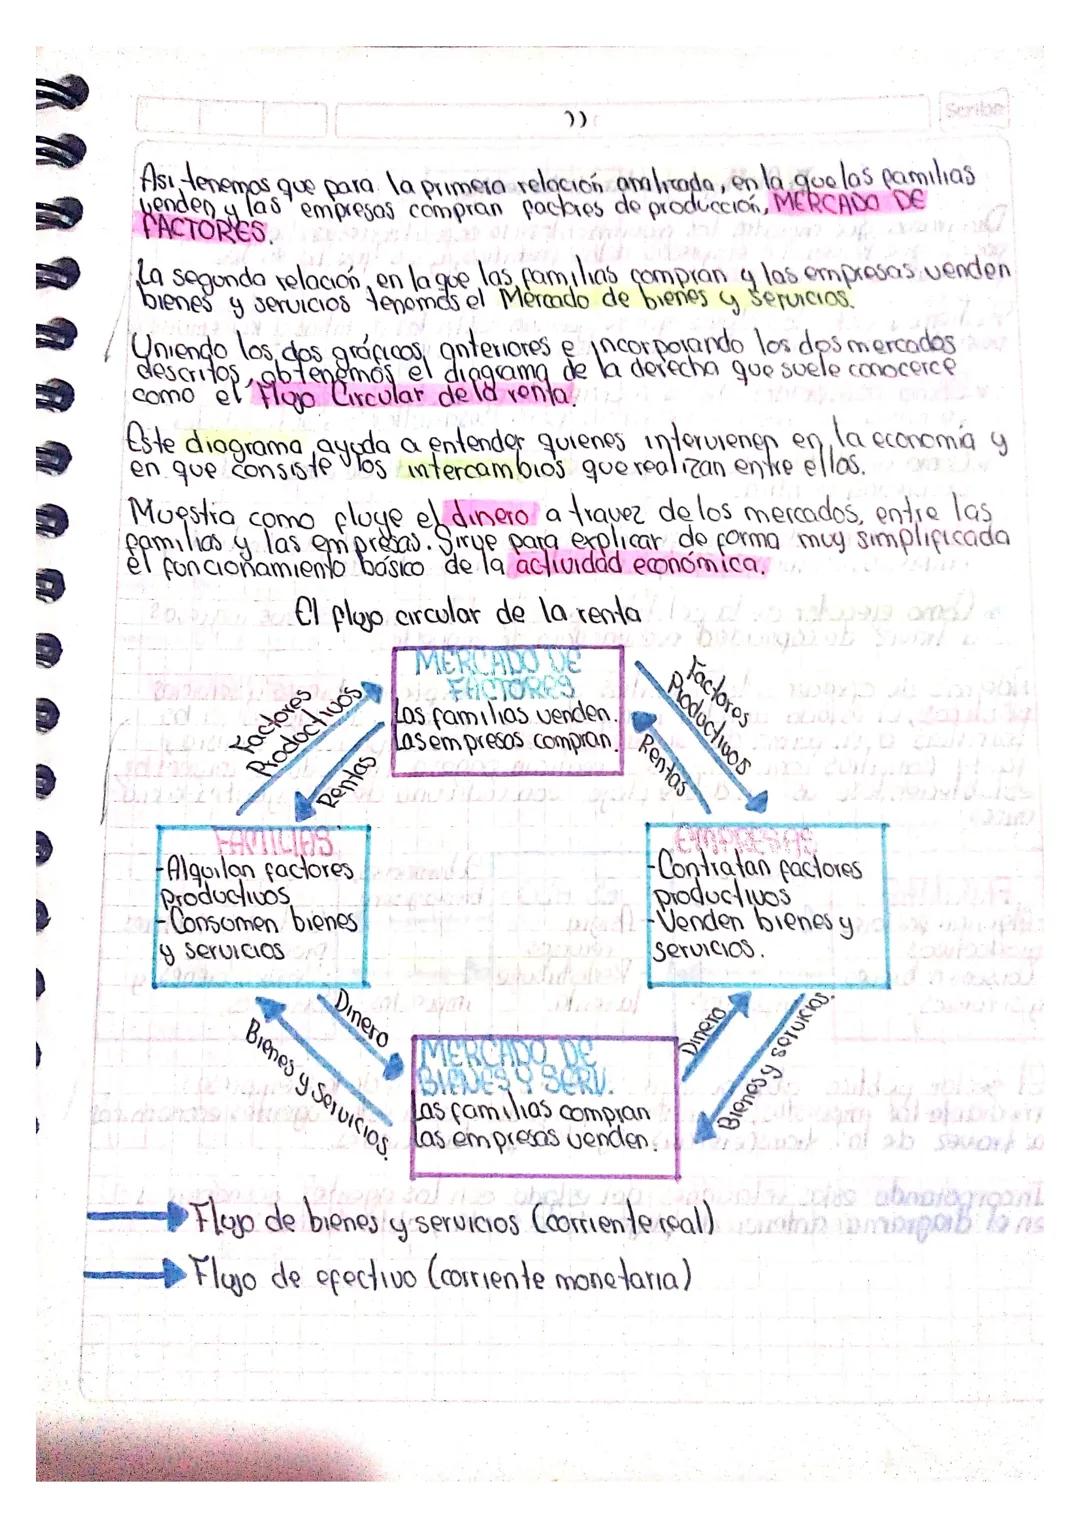 Scribe
Así, tenemos que para la primera relación analizada, en la que las familias
venden y las empresas compran factores de producción, MERCADO DE
FACTORES.
La segunda relación, en la que las familias compran y las empresas venden
bienes y servicios tenemos el Mercado de bienes y servicios.
Uniendo los dos gráficos anteriores e incorporando los dos mercados
descritos, obtenemos el diagrama de la derecha que suele conocerce
como el Flujo Circular de la renta.
Este diagrama ayuda a entender quienes intervienen en la economía y
en que consiste los intercambios que realizan entre ellos.
Muestra como fluye el dinero a travez de los mercados, entre las
familias y las empresas. Sirve para explicar de forma muy simplificada
el funcionamiento básico de la actividad económica.
El flujo circular de la renta
MERCADO DE
FACTORES
Las familias venden.
Las empresas compran.
Factores
Productivos
Rentas
Factores
Productivos
Rentas
FAMILIAS
-Alquilan factores
productivos
-Consumen bienes
y servicios
EMPRESAS
-Contratan factores
productivos
-Venden bienes y
servicios.
Dinero
Bienes y Servicios.
Dinero
Bienes y servicios.
MERCADO DE
BIENES Y SERV.
Las familias compran
Las empresas venden.
Flujo de bienes y servicios (corriente real)
Flujo de efectivo (corriente monetaria)